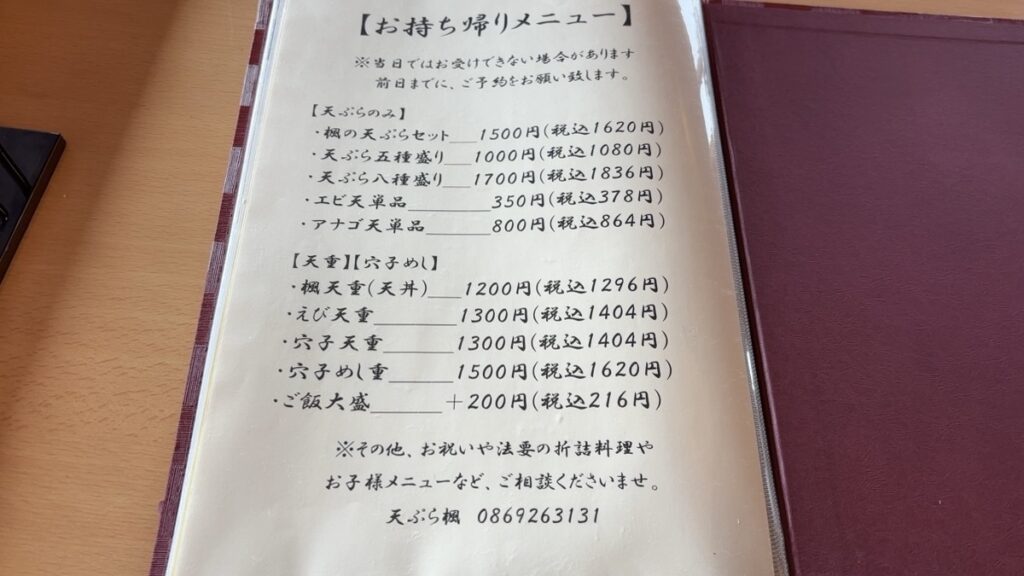 【お持ち帰りメニュー】
※当日ではお受けできない場合があります
前日までに、ご予約をお願い致します。
【天ぷらのみ】
・楓の天ぷらセット___1500円(税込1620円)
・天ぷら五種盛り___1000円(税込1080円)
・天ぷら八種盛り___1700円(税込1836円)
・エビ天単品_________350円(税込378円)
・アナゴ天単品_______800円(税込864円)
【天重】【穴子めし】
・楓天重(天丼)____1200円(税込1296円)
・えび天重_________1300円(税込1404円)
・穴子天重________1300円(税込1404円)
・穴子めし重_______1500円(税込1620円)
・ご飯大盛________+200円(税込216円)
※その他、お祝いや法要の折詰料理や
お子様メニューなど、ご相談くださいませ。
天ぷら楓 0869263131